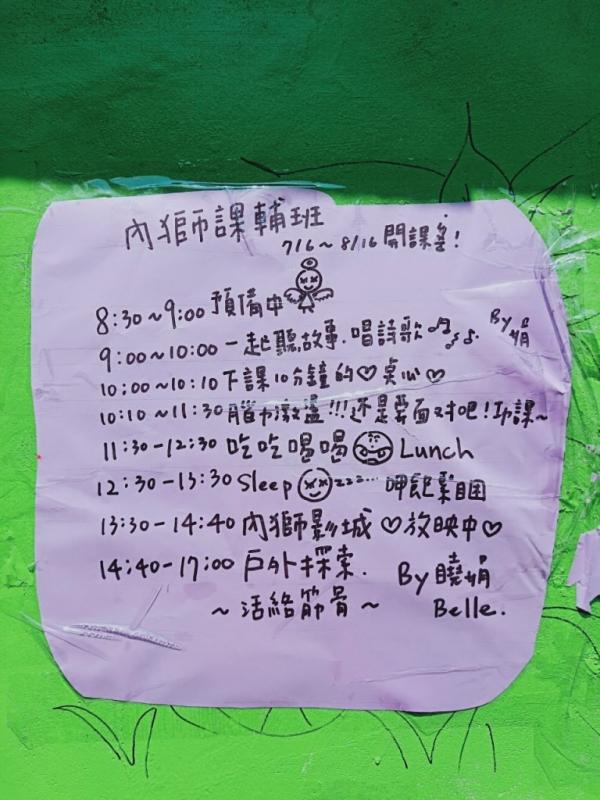 內獅課輔班
7/6~8/16 開課怎!
8:30~9:00 預備中
9:00~10:00 一起聽故事.唱詩歌 By娟
10:00~10:10 下課10分鐘的♡點心♡
10:10~11:30 腦力激盪!!!還是要面對吧!功課~
11:30-12:30 吃吃喝喝 Lunch
12:30-13:30 Sleep zzz... 呷飽睏
13:30-14:40 內獅影城♡放映中♡
14:40-17:00 戶外探索.
~活絡筋骨~
By曉娟
Belle.